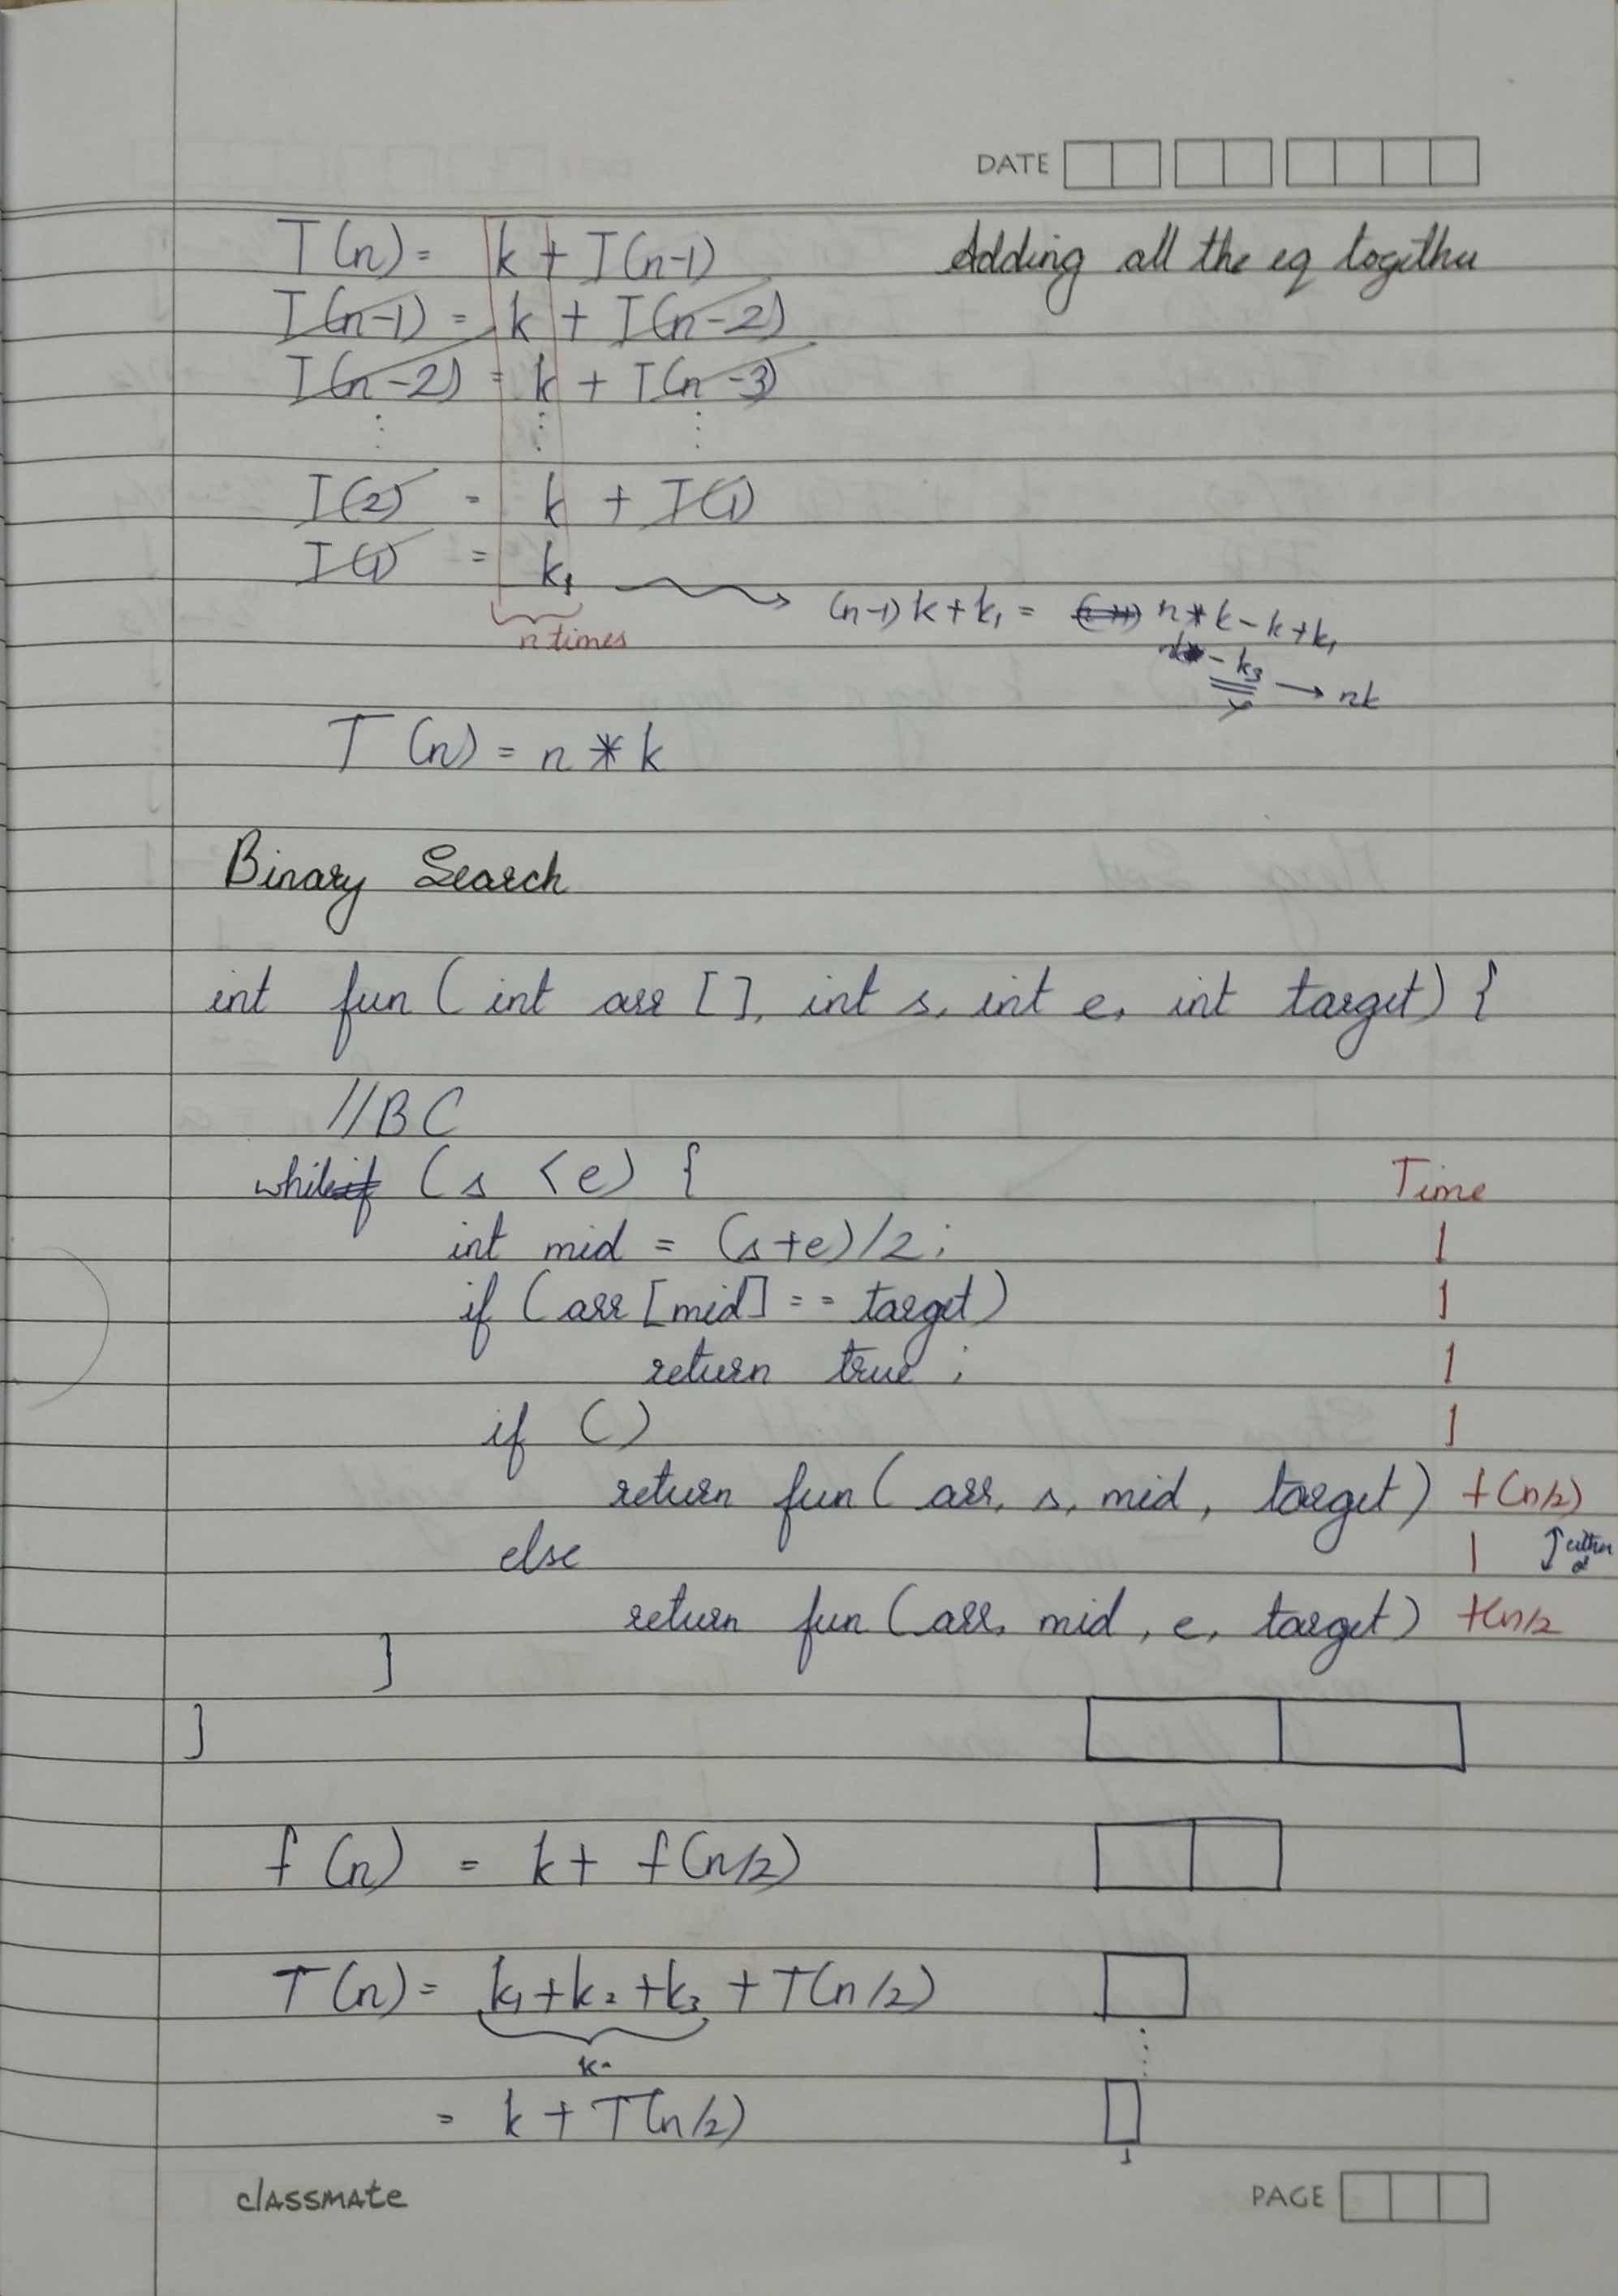 DATE
T(n) = k + T(n-1) Adding all the eq together
T(n-1) = k + T(n-2)
T(n-2) = k + T(n-3)
⋮ ⋮ ⋮
T(2) = k + T(1)
T(1) = k₁
n times
(n-1)k+k₁ = n*k-k+k₁
- k₃ → nk
T(n) = n * k
Binary Search
int fun ( int arr [ ], int s, int e, int target) {
//BC
while (s <e) { Time
int mid = (s+e)/2; 1
if (arr [mid] == target) 1
return true ; 1
if ( ) 1
return fun ( arr, s, mid, target) f(n/2)
else 1 either or
return fun (arr, mid, e, target) f(n/2
}
}
f(n) = k + f(n/2)
T(n) = k₁+k₂+k₃ + T(n/2)
k
= k + T(n/2)
1
classmate PAGE